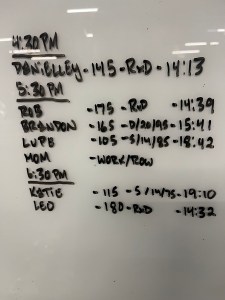 4:30 PM
DANIELLEY - 145 - RXD - 14:13
5:30 PM
ROB - 175 - RXD - 14:39
BRANDON - 165 - D/20/95 - 15:41
LUPE - 105 - S/14/85 - 18:42
MOM - WORK/ROW
6:30 PM
KATIE - 115 - S/14/75 - 19:10
LEO - 180 - RXD - 14:32